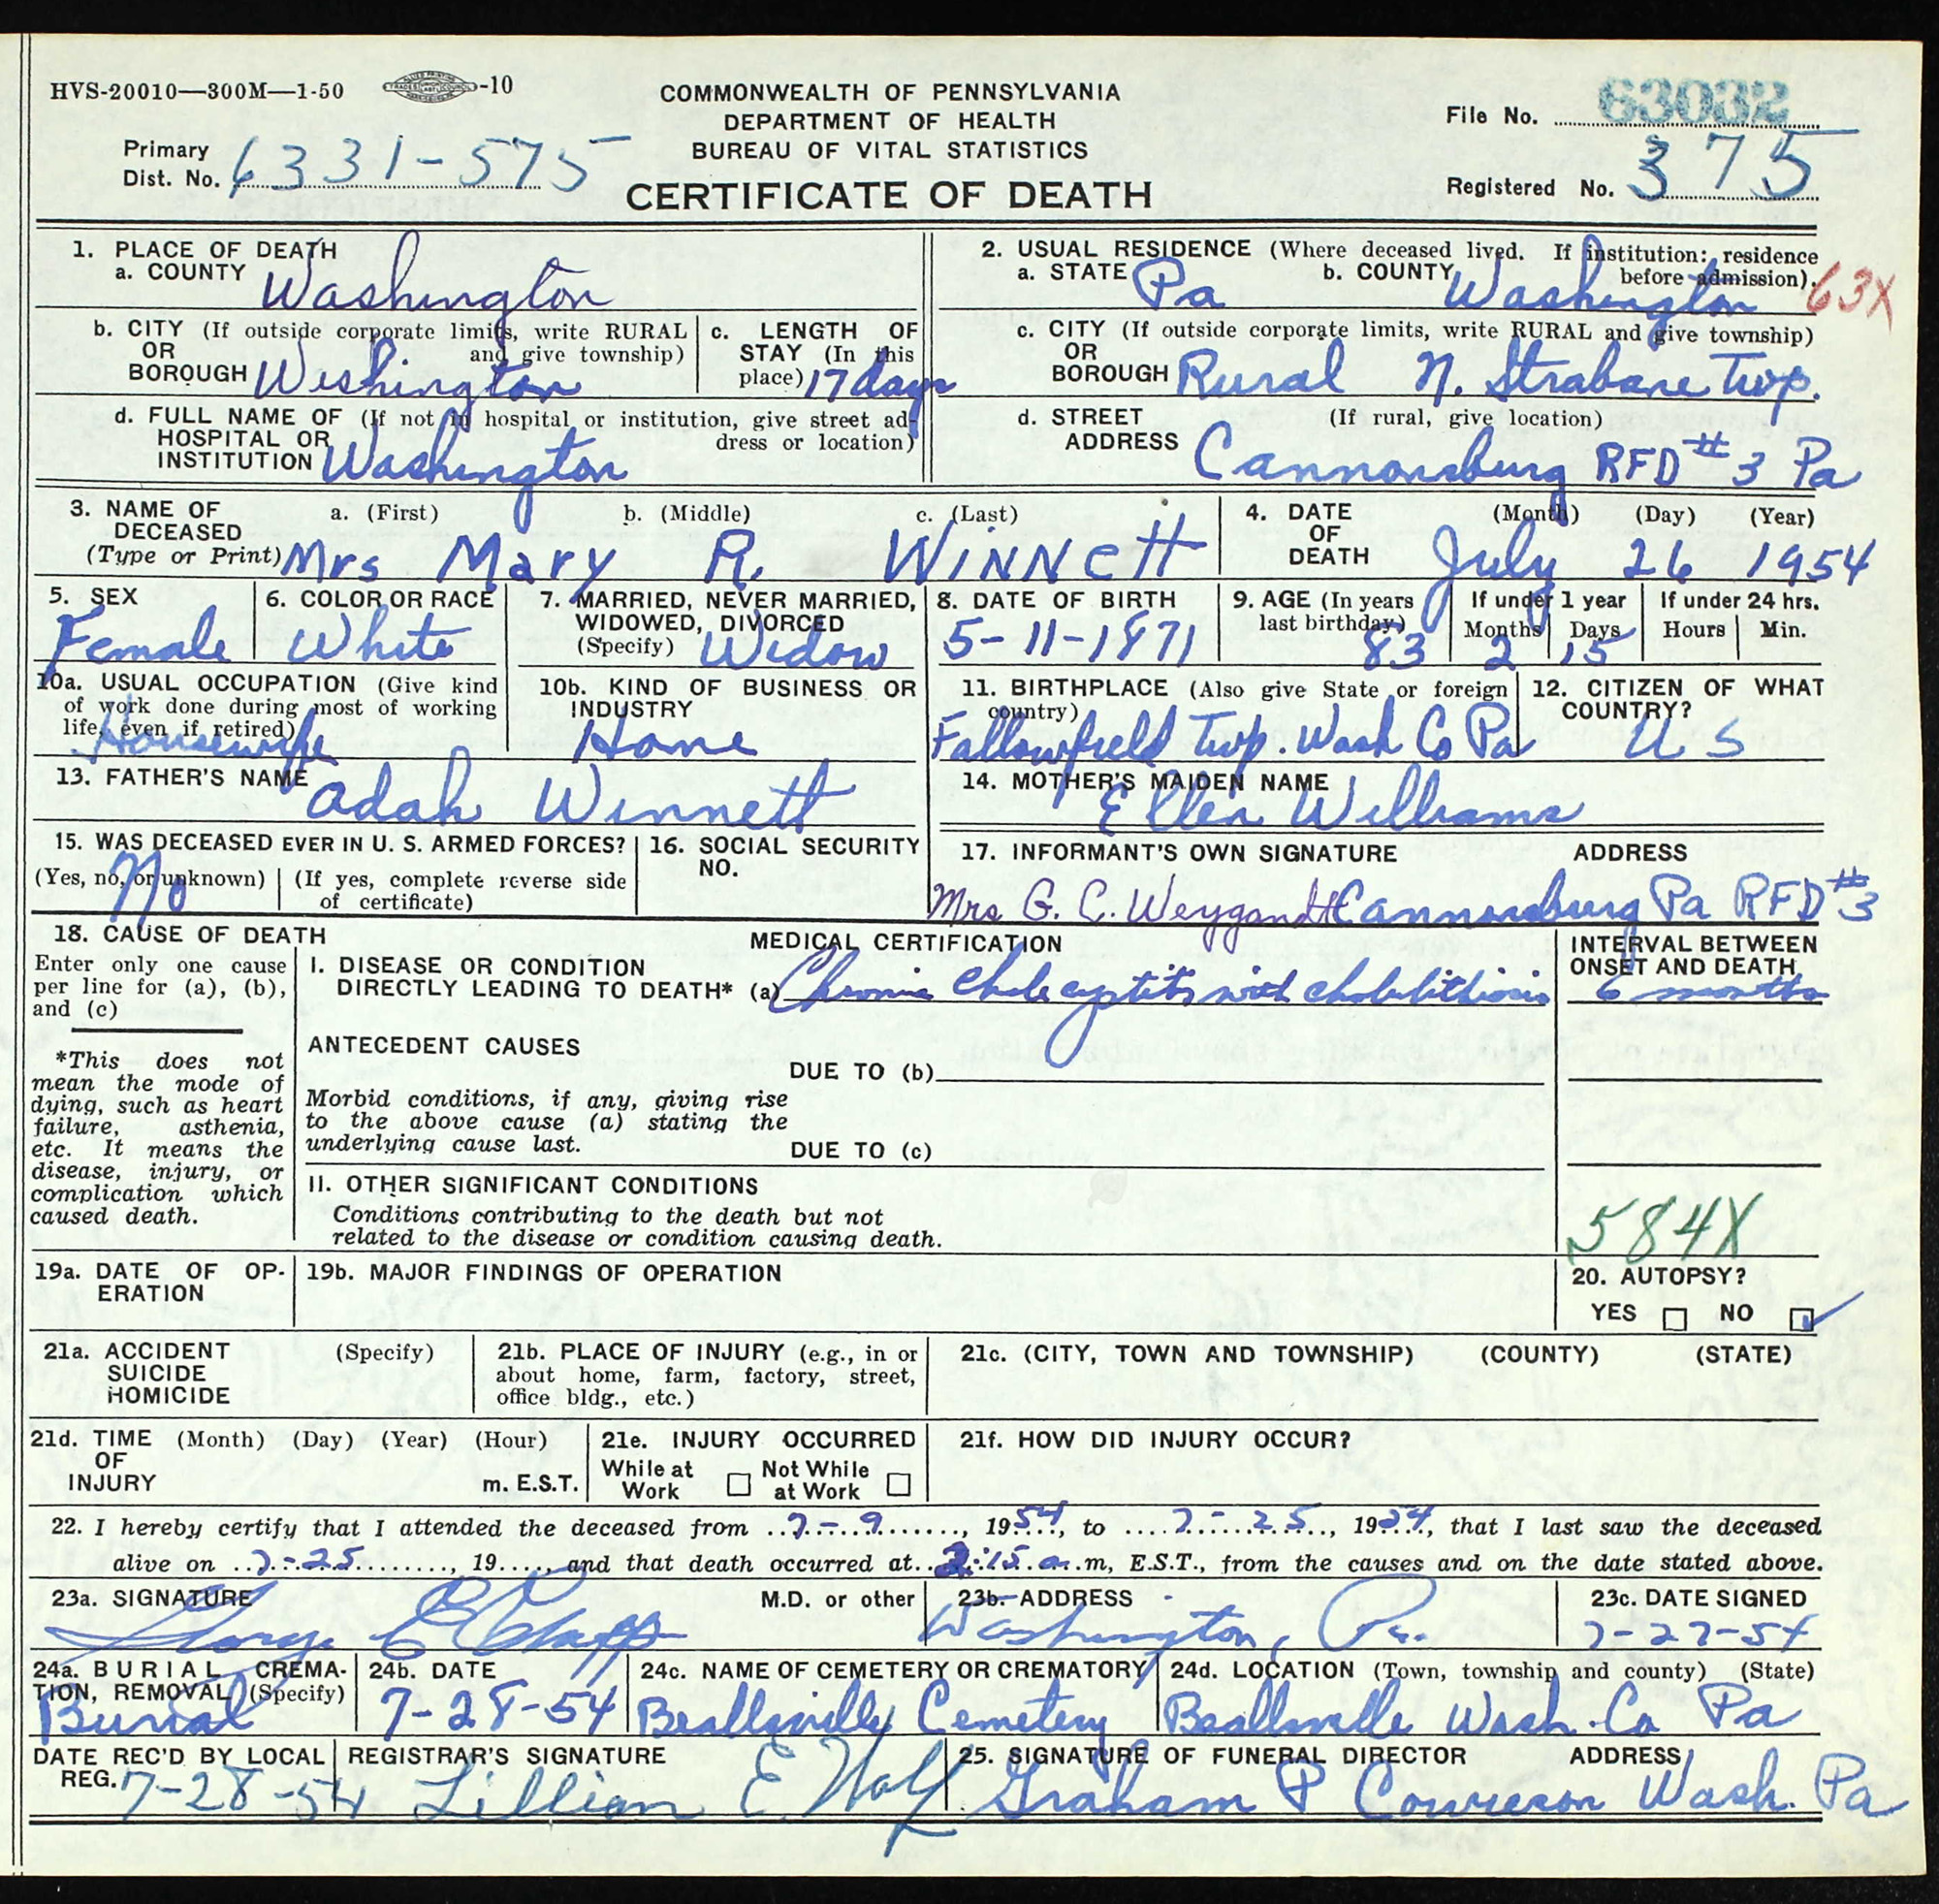 HVS-20010—300M—1-50 -10
COMMONWEALTH OF PENNSYLVANIA
DEPARTMENT OF HEALTH
BUREAU OF VITAL STATISTICS
CERTIFICATE OF DEATH
File No. 63032
Primary Dist. No. 6331-575
Registered No. 375
1. PLACE OF DEATH
a. COUNTY Washington
b. CITY (If outside corporate limits, write RURAL and give township) OR BOROUGH Weshington
c. LENGTH OF STAY (In this place) 17 days
d. FULL NAME OF (If not in hospital or institution, give street address or location) HOSPITAL OR INSTITUTION Washington
2. USUAL RESIDENCE (Where deceased lived. If institution: residence before admission).
a. STATE Pa b. COUNTY Washington 63X
c. CITY (If outside corporate limits, write RURAL and give township) OR BOROUGH Rural N. Strabane Twp.
d. STREET ADDRESS (If rural, give location) Cannonsburg RFD #3 Pa
3. NAME OF DECEASED (Type or Print) a. (First) b. (Middle) c. (Last)
Mrs Mary R. WINNett
4. DATE OF DEATH (Month) (Day) (Year) July 26 1954
5. SEX Female
6. COLOR OR RACE White
7. MARRIED, NEVER MARRIED, WIDOWED, DIVORCED (Specify) Widow
8. DATE OF BIRTH 5-11-1871
9. AGE (In years last birthday) 83 If under 1 year Months 2 Days 15 If under 24 hrs. Hours Min.
10a. USUAL OCCUPATION (Give kind of work done during most of working life, even if retired) Housewife
10b. KIND OF BUSINESS OR INDUSTRY Home
11. BIRTHPLACE (Also give State or foreign country) Fallowfield Twp. Wash Co Pa
12. CITIZEN OF WHAT COUNTRY? U S
13. FATHER'S NAME Adah Winnett
14. MOTHER'S MAIDEN NAME Ellen Williams
15. WAS DECEASED EVER IN U. S. ARMED FORCES?
(Yes, no, or unknown) No (If yes, complete reverse side of certificate)
16. SOCIAL SECURITY NO.
17. INFORMANT'S OWN SIGNATURE ADDRESS
Mrs G. C. Weygandt Cannonsburg Pa RFD #3
18. CAUSE OF DEATH
Enter only one cause per line for (a), (b), and (c)
*This does not mean the mode of dying, such as heart failure, asthenia, etc. It means the disease, injury, or complication which caused death.
MEDICAL CERTIFICATION
I. DISEASE OR CONDITION DIRECTLY LEADING TO DEATH* (a) Chronic cholecystitis with cholelithiasis
INTERVAL BETWEEN ONSET AND DEATH
6 months
ANTECEDENT CAUSES
DUE TO (b)
Morbid conditions, if any, giving rise to the above cause (a) stating the underlying cause last.
DUE TO (c)
II. OTHER SIGNIFICANT CONDITIONS
Conditions contributing to the death but not related to the disease or condition causing death.
584X
19a. DATE OF OPERATION
19b. MAJOR FINDINGS OF OPERATION
20. AUTOPSY?
YES NO
21a. ACCIDENT SUICIDE HOMICIDE (Specify)
21b. PLACE OF INJURY (e.g., in or about home, farm, factory, street, office bldg., etc.)
21c. (CITY, TOWN AND TOWNSHIP) (COUNTY) (STATE)
21d. TIME OF INJURY (Month) (Day) (Year) (Hour) m. E.S.T.
21e. INJURY OCCURRED While at Work Not While at Work
21f. HOW DID INJURY OCCUR?
22. I hereby certify that I attended the deceased from 7-9, 1954, to 7-25, 1954, that I last saw the deceased
alive on 7-25, 19...., and that death occurred at 2:15 a.m, E.S.T., from the causes and on the date stated above.
23a. SIGNATURE George M.D. or other
23b. ADDRESS Washington, Pa.
23c. DATE SIGNED 7-27-54
24a. BURIAL, CREMATION, REMOVAL (Specify) Burial
24b. DATE 7-28-54
24c. NAME OF CEMETERY OR CREMATORY Beallsville Cemetery
24d. LOCATION (Town, township and county) (State) Beallsville Wash. Co Pa
DATE REC'D BY LOCAL REG. 7-28-54
REGISTRAR'S SIGNATURE Lillian E.
25. SIGNATURE OF FUNERAL DIRECTOR ADDRESS
Graham P Wash. Pa